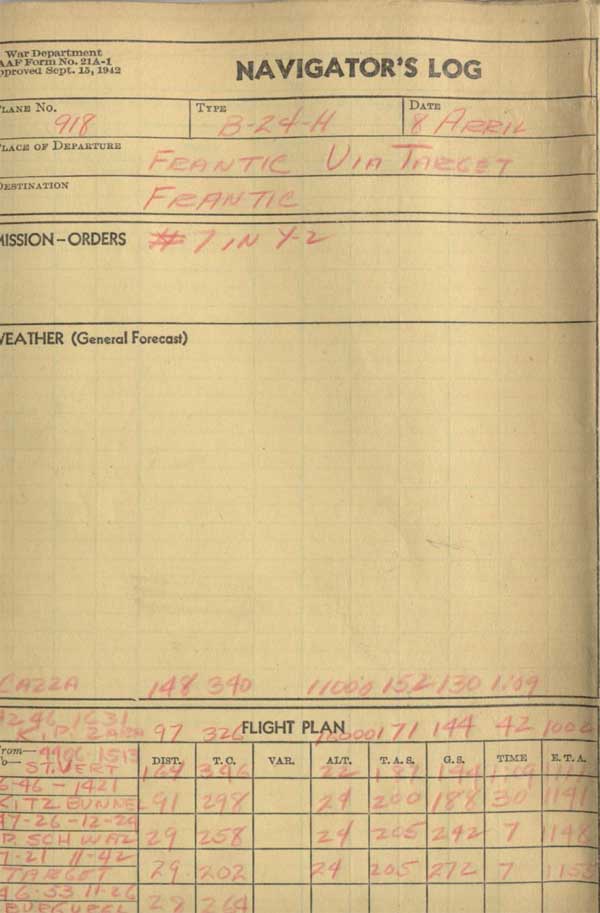 War Department
AAF Form No. 21A-1
pproved Sept. 15, 1942
NAVIGATOR'S LOG
PLANE No. 918 TYPE B-24-H DATE 8 APRIL
PLACE OF DEPARTURE FRANTIC VIA TARGET
DESTINATION FRANTIC
MISSION-ORDERS #7 IN Y-2
WEATHER (General Forecast)
CAZZA 148 340 11000 152 130 1:09
1631
K.P. ZARA 97 326 171 144 42
FLIGHT PLAN
From— 1513
To— ST. VERT DIST. T.C. VAR. ALT. T.A.S. G.S. TIME E.T.A.
164 346 22 187 144
6-46 - 1421
KITZ BUNNEL 91 298 24 200 188 30 1141
47-26-12-29
P. SCHWAZ 29 258 24 205 242 7 1148
7-21 11-42
TARGET 29 202 24 205 272 7 1155
46-53 11-26
28 264